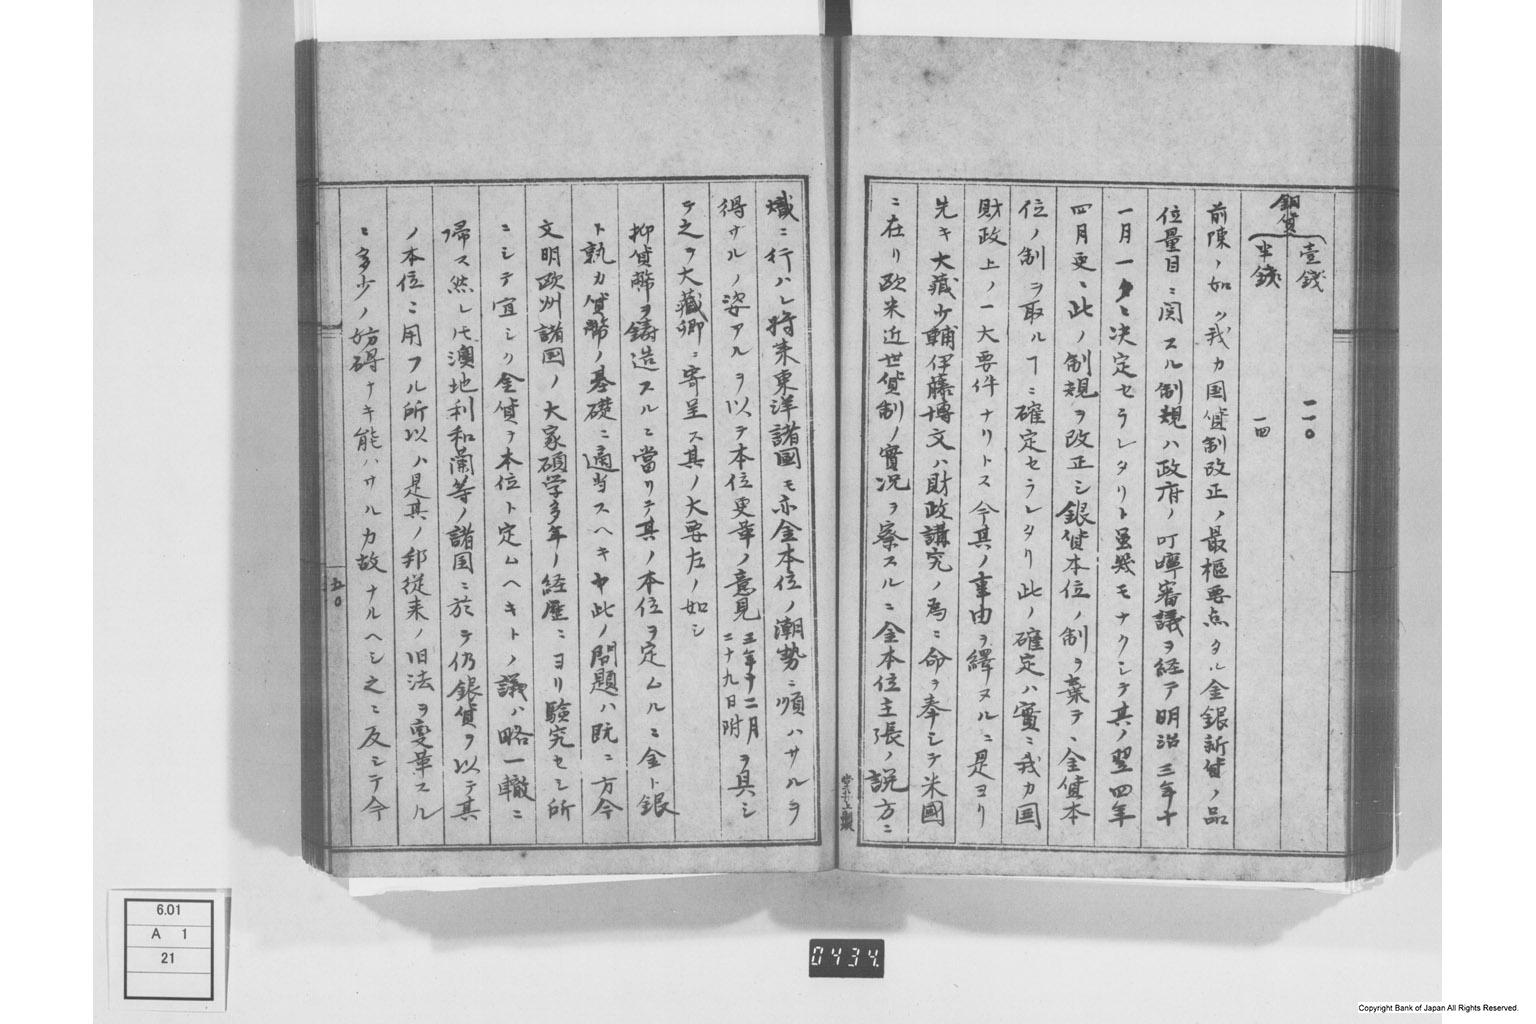 銅貨
壹錢 一一〇
半錢 一四
前陳ノ如ク我カ国貨制改正ノ最樞要点タル金銀新貨ノ品
位量目ニ関スル制規ハ政府ノ叮嚀審議ヲ経テ明治三年十
一月一タヒ決定セラレタリト虽幾モナクシテ其ノ翌四年
四月更ニ此ノ制規ヲ改正シ銀貨本位ノ制ヲ棄テヽ金貨本
位ノ制ヲ取ルヿニ確定セラレタリ此ノ確定ハ實ニ我カ国
財政上ノ一大要件ナリトス今其ノ事由ヲ繹ヌルニ是ヨリ
先キ大藏少輔伊藤博文ハ財政講究ノ為ニ命ヲ奉シテ米國
ニ在リ欧米近世貨制ノ實況ヲ察スルニ金本位主張ノ説方ニ
熾ニ行ハレ将来東洋諸國モ亦金本位ノ潮勢ニ順ハサルヲ
得サルノ姿アルヲ以テ本位更革ノ意見三年十二月二十九日附ヲ具シ
テ之ヲ大藏卿ニ寄呈ス其ノ大要左ノ如シ
抑貨幣ヲ鋳造スルニ當リテ其ノ本位ヲ定ムルニ金ト銀
ト孰カ貨幣ノ基礎ニ適当スヘキヤ此ノ問題ハ既ニ方今
文明欧州諸国ノ大家碩学多年ノ経歴ニヨリ験究セシ所
ニシテ宜シク金貨ヲ本位ト定ムヘキトノ議ハ略一轍ニ
帰ス然レ𪜈澳地利和蘭等ノ諸国ニ於テ仍銀貨ヲ以テ其
ノ本位ニ用フル所以ハ是其ノ邦従来ノ旧法ヲ変革スル
ニ多少ノ妨碍ナキ能ハサルカ故ナルヘシ之ニ反シテ今
五〇
6.01
A 1
21
0434
Copyright Bank of Japan All Rights Reserved.